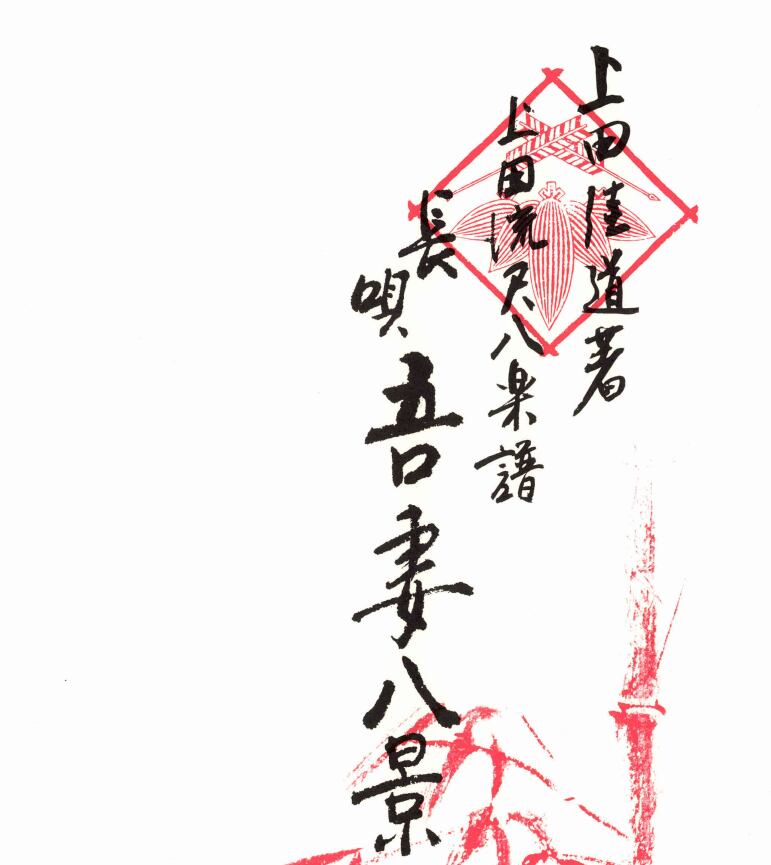 上田佳道著
上田流尺八楽譜
長唄
吾妻八景